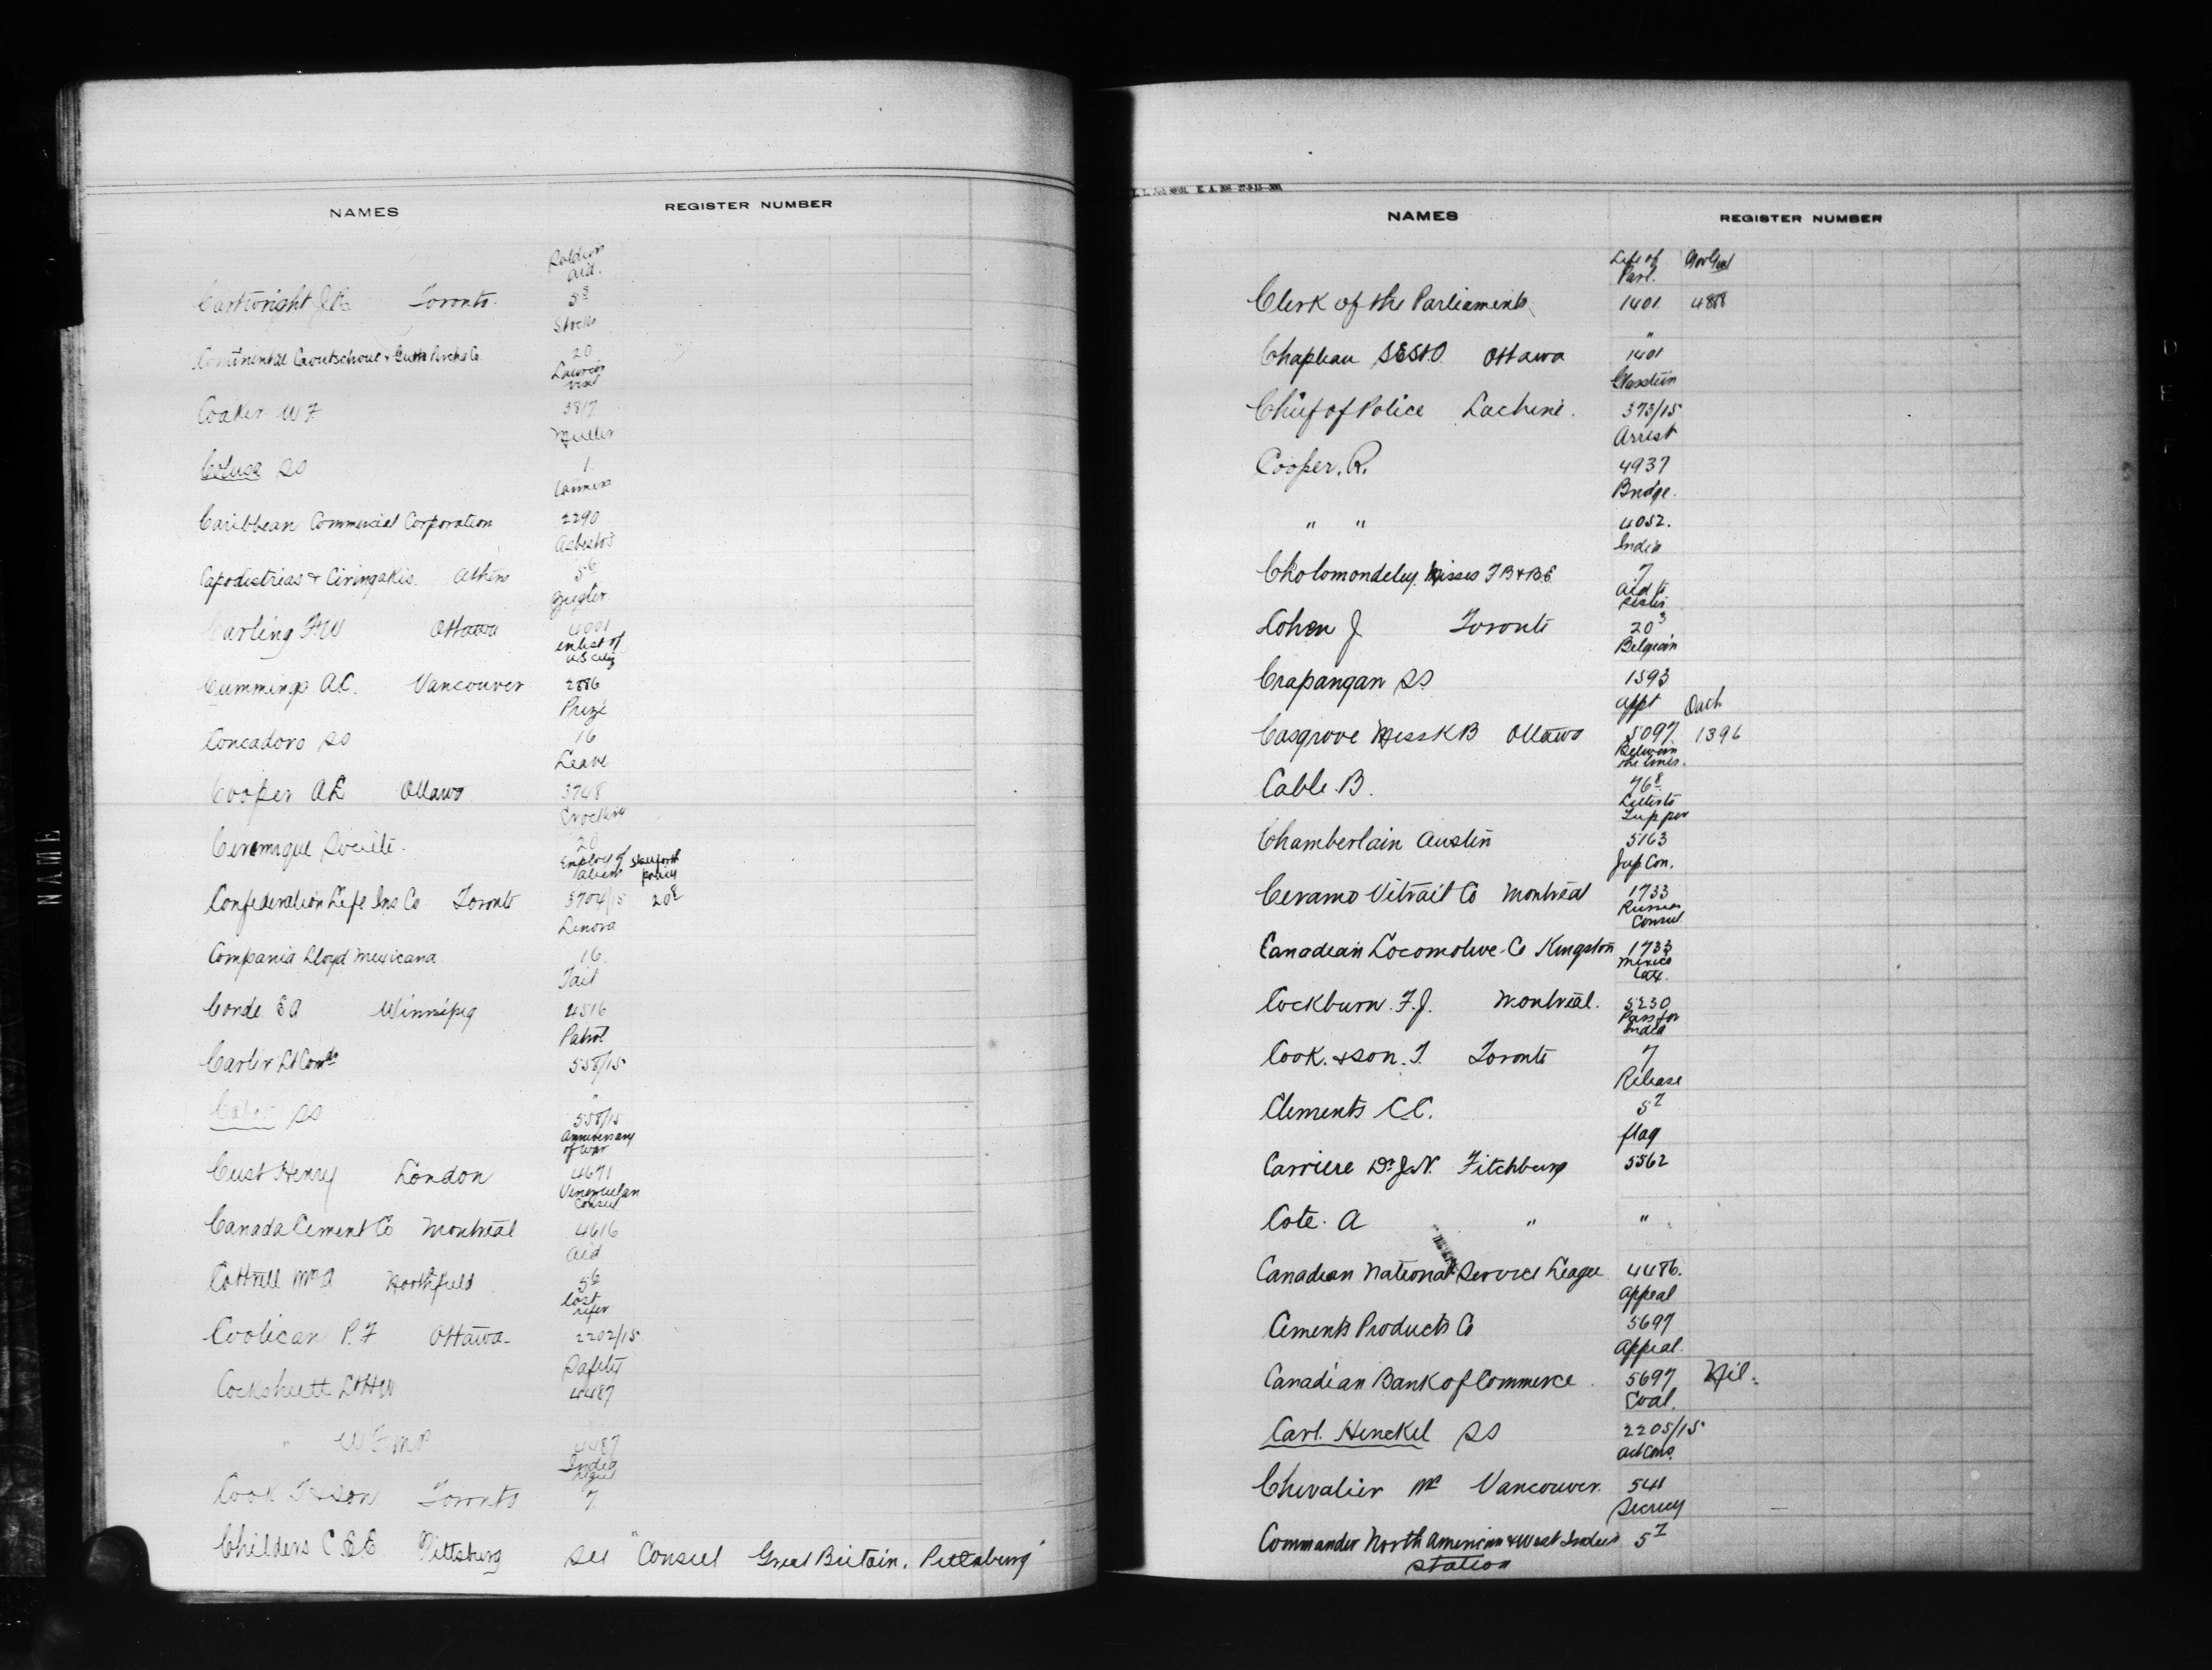 NAMES REGISTER NUMBER
aid.
Cartwright J.R. Toronto. 5
Stocks
20
Coaker W F 3817
Muller
Colusa SS 1.
Caribbean Commercial Corporation 2290
Asbestos
Capodistrias & Ciringakis. Athens 5 6
Ziegler
Carling F.W Ottawa 4001
enlist of
U.S citiz
Cummings A.C. Vancouver 2886
Prize
Concadoro SS 16
Leave
Cooper A.E Ottawa 3748
Crockery
Ceramique Société. 20
Employ of
aliens policy
Confederation Life Ins Co Toronto 3704/15 20
Lenora
Compania Lloyd Mexicana 16.
Tait
Corde E A Winnipeg 4516
Patrol
Carter Lt Comdr 558/15
SS 558/15
Anniversary
of war
Cust Henry London 4671
Venezuelan
Consul
Canada Cement Co Montreal 4616
Aid
Cottrell Mr A Northfield 5 6
Lost
Coolican P.F Ottawa. 2202/15
Safety
Cockshutt Lt H W 4487
" W F MP 4487
India
Cook T & Son Toronto 7
Childers C E E Pittsburg See "Consul Great Britain, Pittsburg"
NAME
NAMES REGISTER NUMBER
Life of Gov Genl
Parl.
Clerk of the Parliaments 1401 4888
"
Chapleau S E St O. Ottawa 1401
Chief of Police Lachine. 373/15
Arrest
Cooper. R. 4937
Bridge.
" " 4052.
India
Cholomondeley Misses F B & B.E. 7
Aid to
Cohen J Toronto 20 3
Belgian
Crapangan SS 1593
Appt Oath
Casgrove Miss K B Ottawa 5097 1396
Between
the lines.
Cable. B. 76 8
Letter to
Tupper
Chamberlain Austin 5163
Jap Con.
Ceramo Vitrail Co Montreal 1733
Russian
Consul
Canadian Locomotive Co Kingston 1733
Mexico
Cockburn. F.J. Montreal. 5230
Pass for
India
Cook. & Son. T. Toronto 7
Release
Clements C C. 5 7
flag
Carriere Dr J.N. Fitchburg 5562
Cote. A " "
Canadian National Service League 4486.
Appeal
Cements Products Co 5697
Appeal.
Canadian Bank of Commerce 5697 Nil.
Coal.
Carl. Henckel SS 2205/15
Act Cons.
Chevalier Mr Vancouver. 541
Secrecy
Commander North American & West Indies 5 7
Station